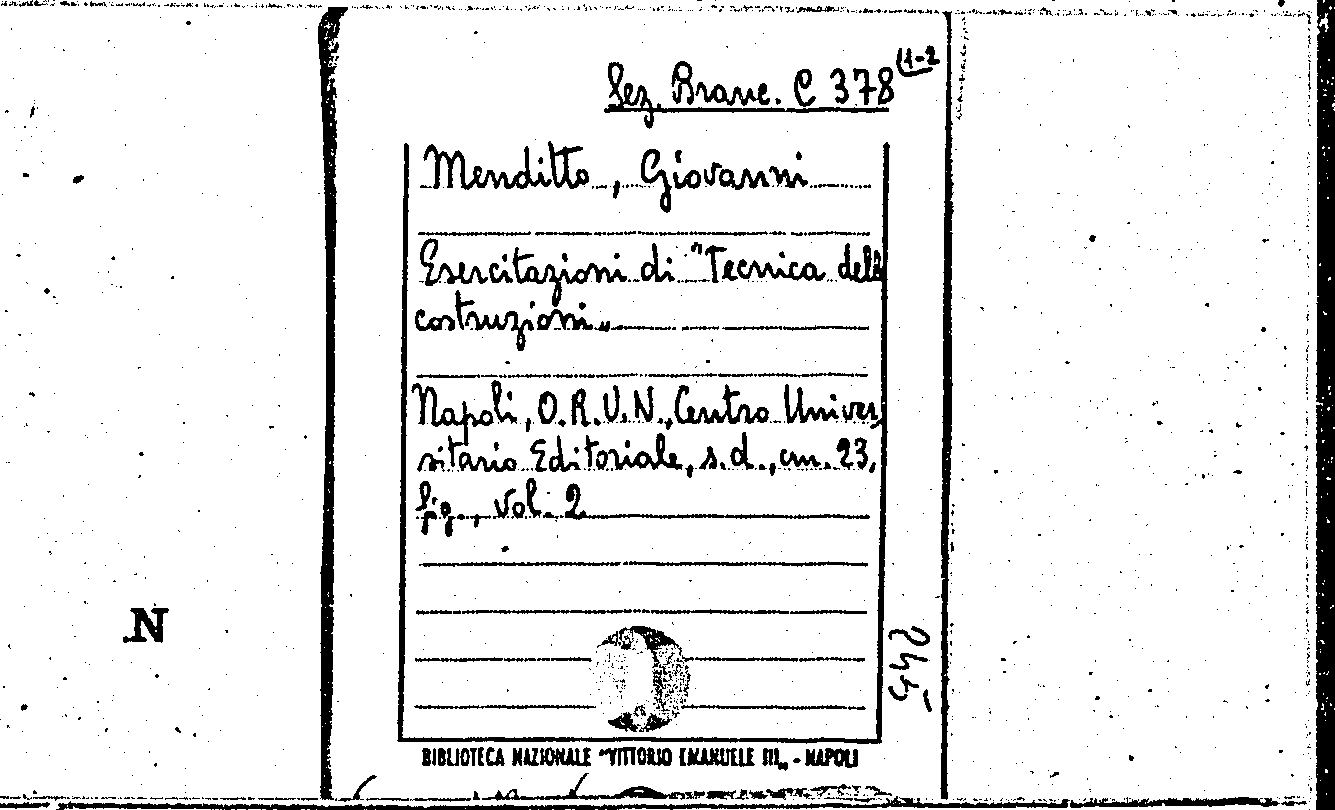 Sez. Branc. C 378 (1-2
Menditto, Giovanni
Esercitazioni di "Tecnica delle
costruzioni„
Napoli, O.R.U.N., Centro Univer,
sitario Editoriale, s.d., cm. 23,
fig., vol. 2
N
BIBLIOTECA NAZIONALE "VITTORIO EMANUELE III„ - NAPOLI